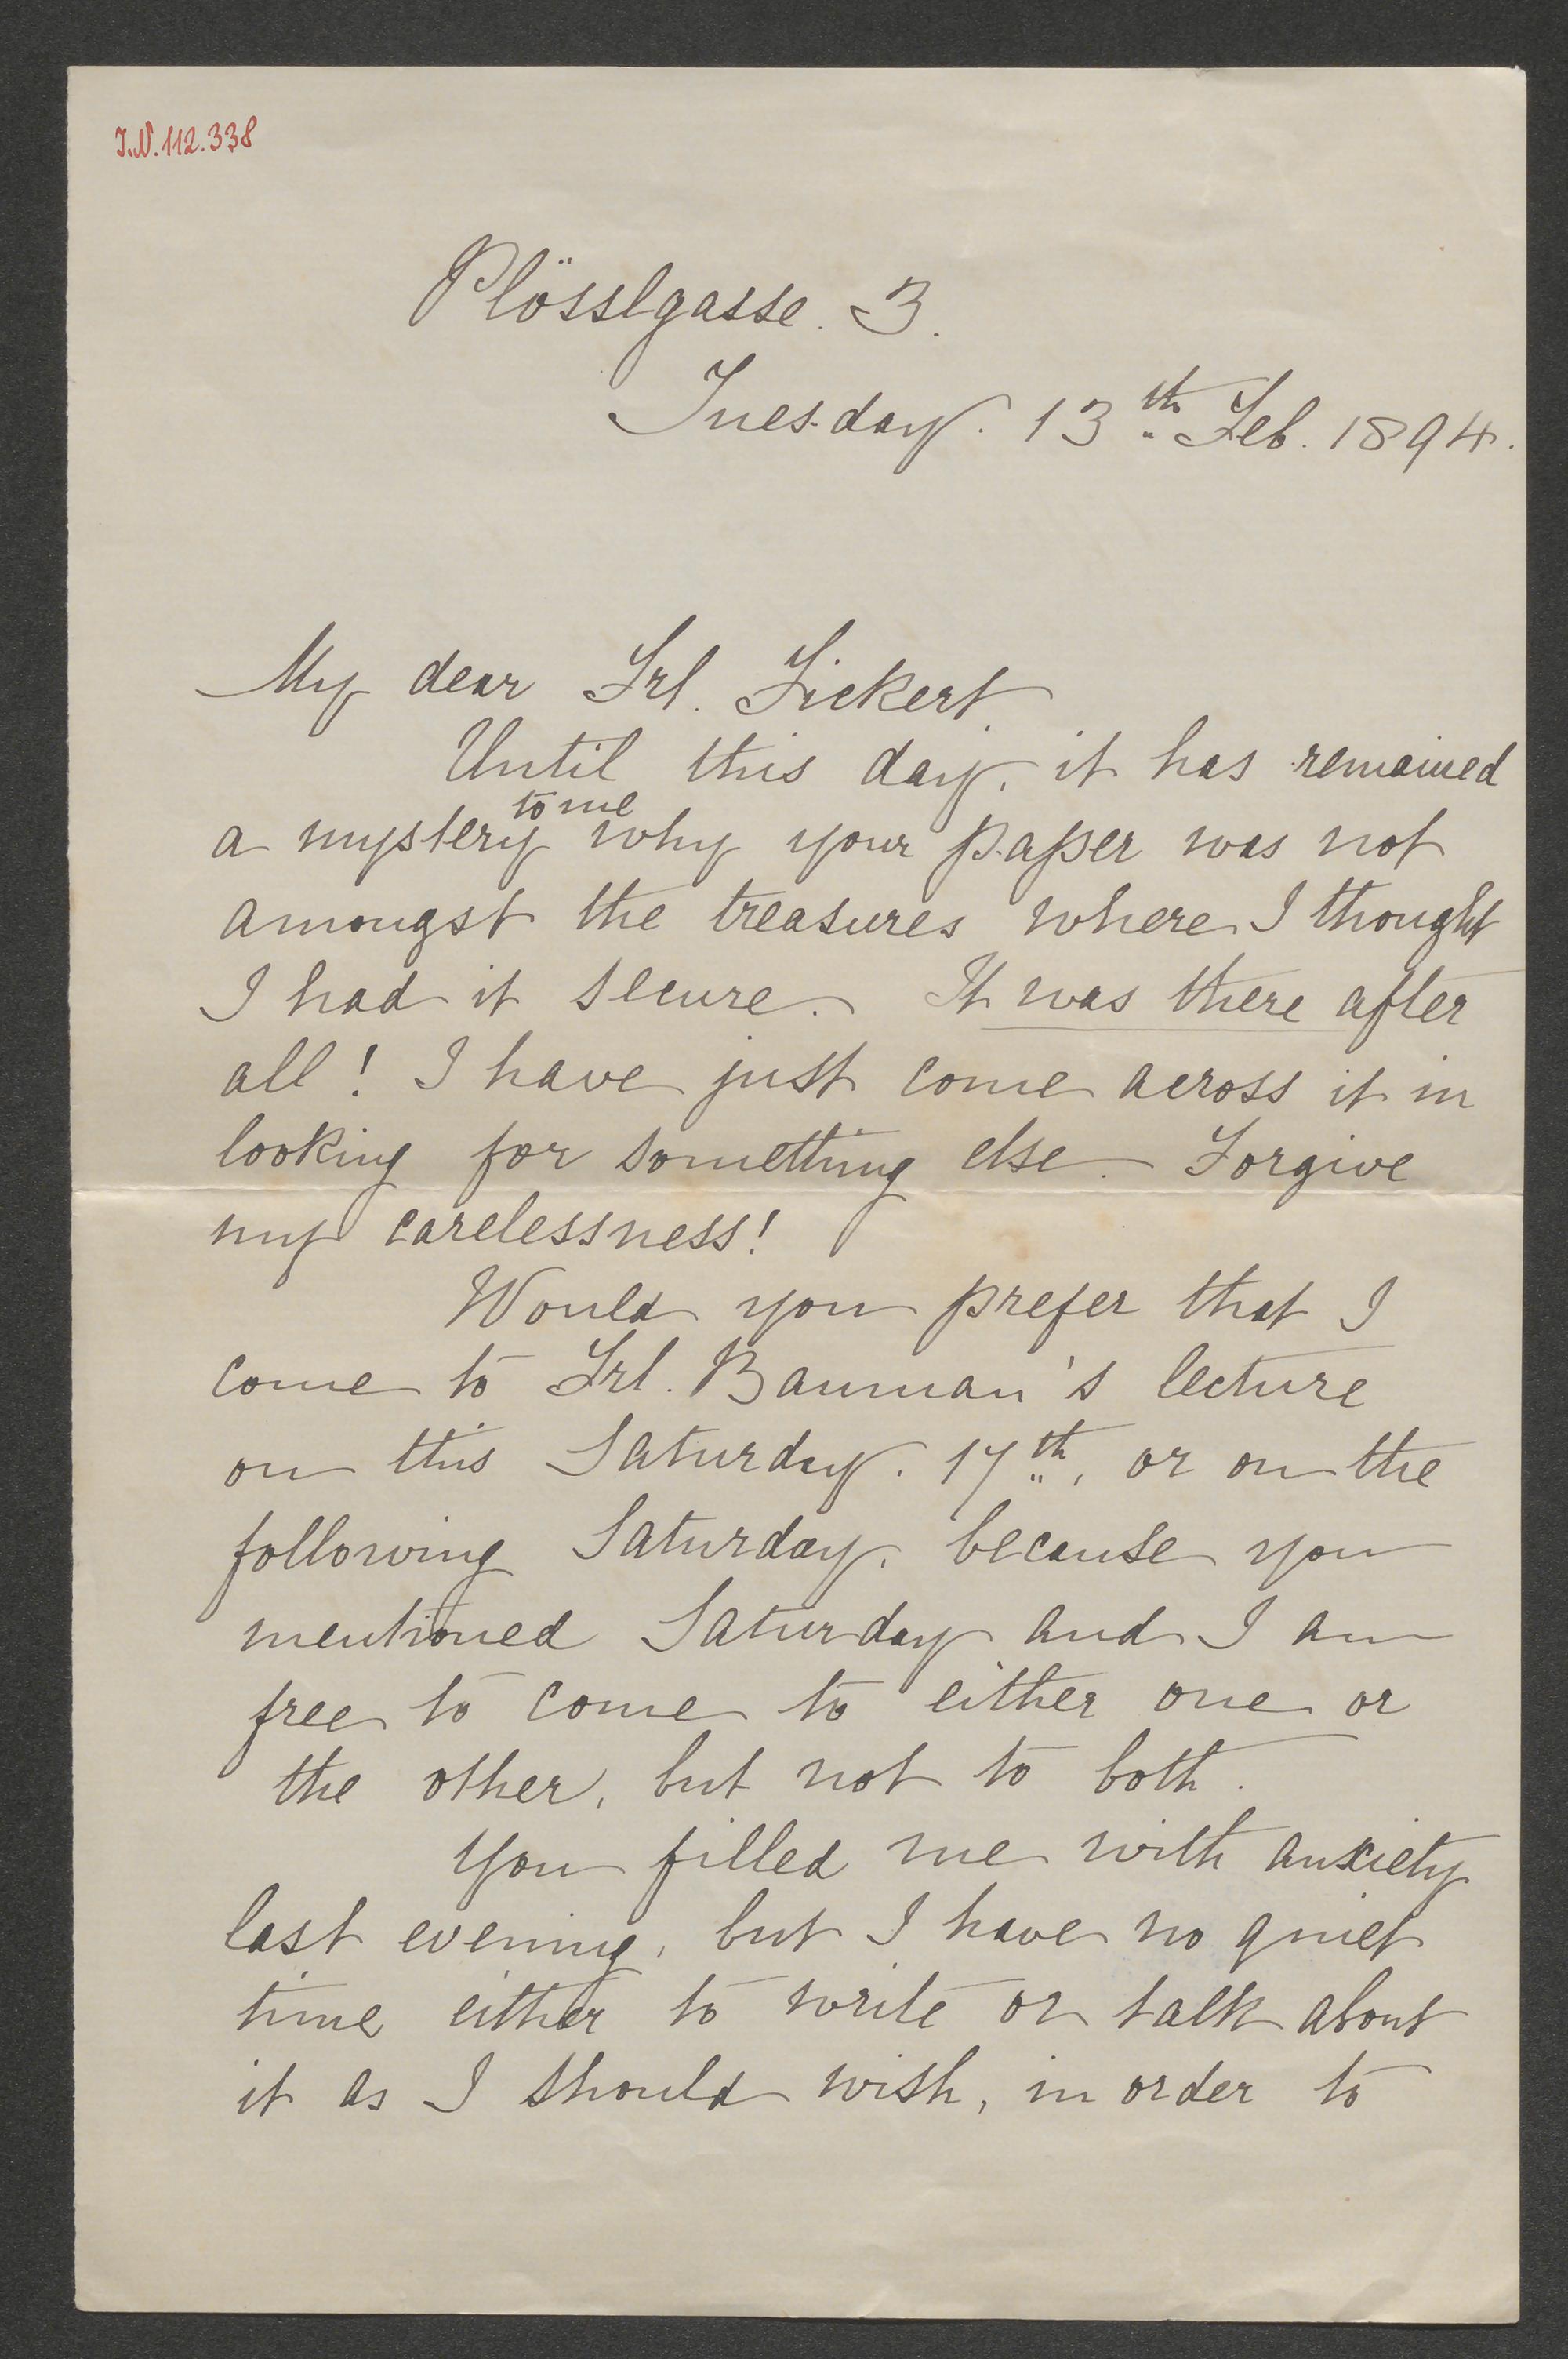 I.N. 112.338
Plösslgasse. 3.
Tuesday. 13th Feb. 1894.
My dear Frl. Fickert,
Until this day, it has remained
to me
a mystery why your paper was not
amongst the treasures where I thought
I had it secure. It was there after
all! I have just come across it in
looking for something else. Forgive
my carelessness!
Would you prefer that I
come to Frl. Bauman's lecture
on this Saturday. 17th, or on the
following Saturday, because you
mentioned Saturday and I am
free to come to either one or
the other, but not to both.
You filled me with anxiety
last evening, but I have no quiet
time either to write or talk about
it as I should wish, in order to